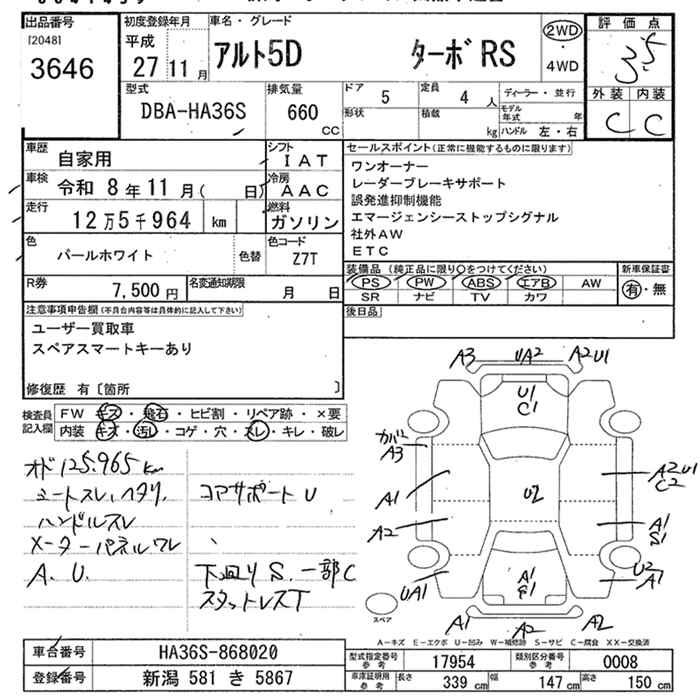 出品番号
[2048]
3646
初度登録年月
平成
27 11 月
車名・グレード
アルト5D ターボRS
2WD
・
4WD
評価点
3.5
外装 内装
C C
型式
DBA-HA36S
排気量
660 CC
ドア
5
定員
4 人
ディーラー・並行
形状
積載
kg
モデル年式 年
ハンドル 左・右
車歴
自家用
シフト
IAT
車検
令和 8年 11月( 日)
冷房
AAC
走行
12万5千964 km
燃料
ガソリン
色
パールホワイト
色替
色コード
Z7T
R券
7,500 円
名変通知期限
月 日
セールスポイント(正常に機能するものに限ります)
ワンオーナー
レーダーブレーキサポート
誤発進抑制機能
エマージェンシーストップシグナル
社外AW
ETC
装備品(純正品に限り○をつけてください)
PS PW ABS エアB AW
SR ナビ TV カワ
新車保証書
有・無
後日品
注意事項申告欄(不具合内容等は具体的に記入して下さい)
ユーザー買取車
スペアスマートキーあり
修復歴 有〔箇所 〕
検査員記入欄
FW キズ・飛石・ヒビ割・リペア跡・×要
内装 キズ・汚レ・コゲ・穴・スレ・キレ・破レ
オド 125.965 km
シートスレ、ヘタリ
ハンドルスレ
メーターパネルワレ
A.U.
コアサポートU
下廻りS.一部C
スタットレスT
A3 UA2 A2U1
U1
C1
カバー
A3
A1
U2
A2U
C2
A2
A1
S1
UA1
A1
F1
U2
A1
スペア
A1 A2 A2
A-キズ E-エクボ U-凹み W-補修跡 S-サビ C-腐食 XX-交換済
車台番号
HA36S-868020
登録番号
新潟 581 き 5867
型式指定番号
参考
17954
類別区分番号
参考
0008
車庫証明用
参考
長さ 339 cm
幅 147 cm
高さ 150 cm